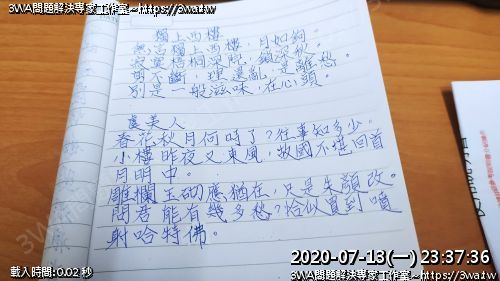 3WA問題解決專家工作室~https://3wa.tw
3WA問題解決專家工作室~https://3wa.tw
獨上西樓
無言獨上西樓,月如鉤。
寂寞梧桐深院,鎖清秋。
剪不斷,理還亂,是離愁。
別是一般滋味,在心頭。
虞美人
春花秋月何時了?往事知多少。
小樓昨夜又東風,故國不堪回首
月明中。
雕欄玉砌應猶在,只是朱顏改。
問君能有幾多愁?恰似遇到噴
射哈特佛。
2020-07-13(一) 23:37:36
載入時間:0.02 秒
3WA問題解決專家工作室~https://3wa.tw